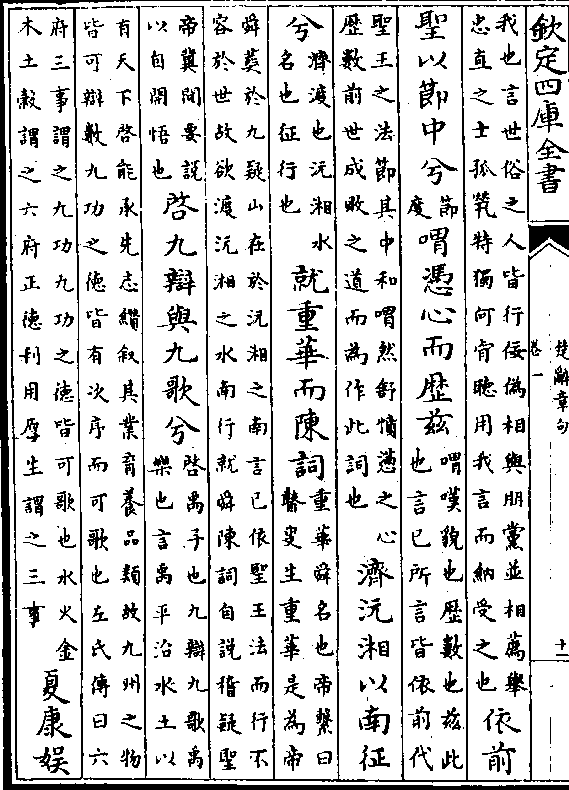 欽定四庫全書
楚辭章句
卷一
十
我也言世俗之人皆行佞偽相與朋黨並相薦舉
忠直之士孤煢特獨何肯聽用我言而納受之也
依前
聖以節中兮
節
度
喟憑心而歷兹
喟嘆貌也歷數也兹此
也言已所言皆依前代
聖王之法節其中和喟然舒憤憑之心
歷數前世成敗之道而為作此詞也
濟沅湘以南征
兮
濟渡也沅湘水
名也征行也
就重華而陳詞
重華舜名也帝繫曰
瞽叟生重華是為帝
舜葬於九疑山在於沅湘之南言已依聖王法而行不
容於世故欲渡沅湘之水南行就舜陳詞自説稽疑聖
帝冀聞要説
以自開悟也
啓九辯與九歌兮
啓禹子也九辯九歌禹
樂也言禹平治水土以
有天下啓能承先志纉叙其業育養品類故九州之物
皆可辯數九功之徳皆有次序而可歌也左氏傳曰六
府三事謂之九功九功之徳皆可歌也水火金
木土榖謂之六府正徳利用厚生謂之三事
夏康娱